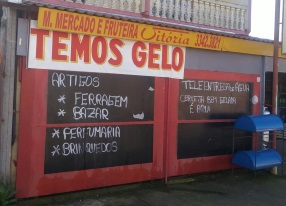 M. MERCADO E FRUTEIRA Vitória 3342.3821
TEMOS GELO
ARTIGOS
* FERRAGEM
* BAZAR
* PERFUMARIA
* BRINQUEDOS
TELE ENTREGA ÁGUA
BEM GELADA
É AQUI